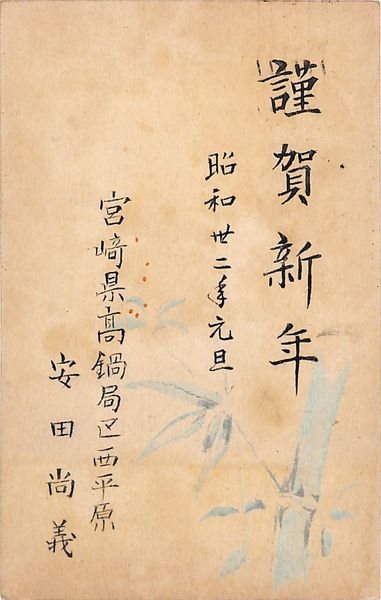 謹賀新年
昭和卅二年元旦
宮﨑県高鍋局区西平原
安田尚義